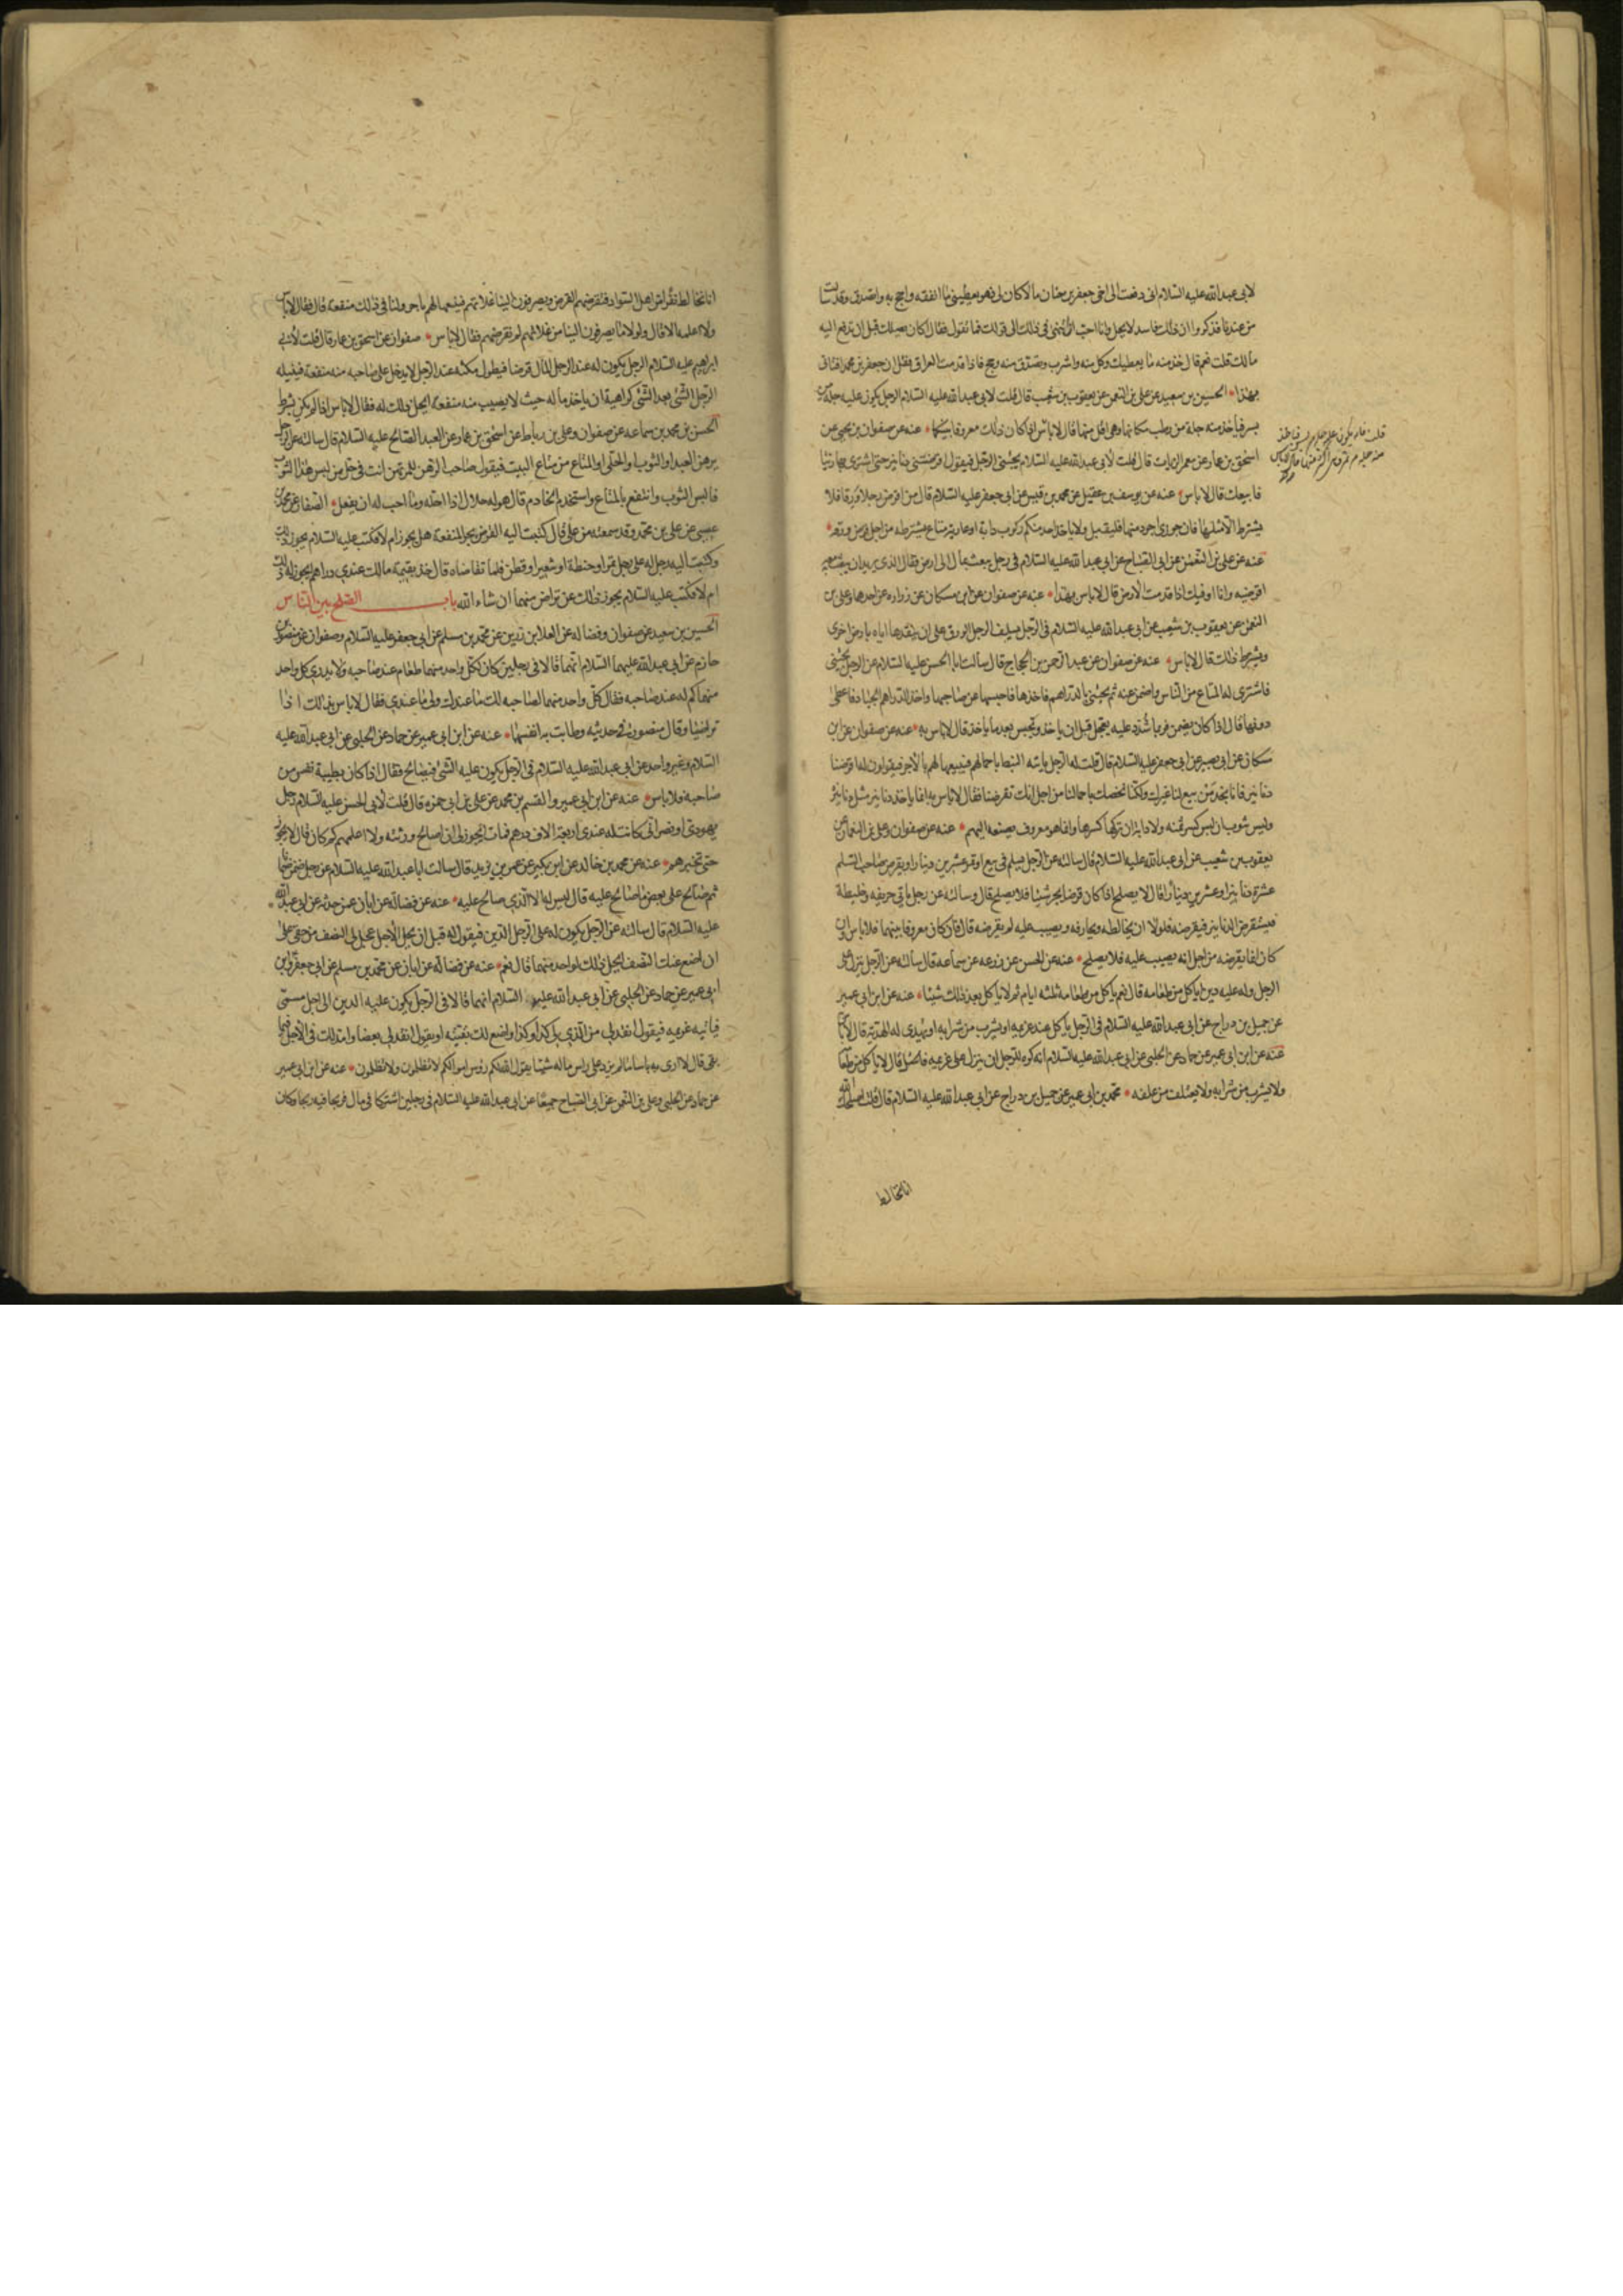 لابي عبد الله عليه السلام اني دفعت الى اخي جعفر بن حنان مالا كان لي فهو يعطيني ما انفقه واحج به واتصدق وقد سالت
من عندنا فذكروا ان ذلك فاسد لا يحل وانا احب ان انتهي في ذلك الى قولك فما تقول فقال اكان يصلك قبل ان تدفع اليه
مالك قلت نعم قال خذ منه ما يعطيك وكل منه واشرب وتصدق منه وحج فاذا قدمت العراق فقل ان جعفر بن محمد افتاني
بهذا الحسين بن سعيد عن علي بن النعمن عن يعقوب بن شعيب قال قلت لابي عبد الله عليه السلام الرجل يكون عليه جلة من
بسر فياخذ منه جلة من رطب مكانها وهي اقل منها قال لا باس اذا كان ذلك معروفا بينكما عنه عن صفوان بن يحيى عن
قلت فان يكون عليه جلة من بسر فياخذ
منه جلة من تمر وهي اكثر منها قال لا باس
اسحق بن عمار عن معمر الزيات قال قلت لابي عبد الله عليه السلام يجيئني الرجل فيقول اقرضني دنانير حتى اشتري بها زيتا
فابيعك قال لا باس عنه عن يوسف بن عقيل عن محمد بن قيس عن ابي جعفر عليه السلام قال من اقرض رجلا ورقا فلا
يشترط الا مثلها فان جوزي اجود منها فليقبل ولا ياخذ احد منكم ركوب دابة او عارية متاع يشترطه من اجل قرض ورقه
عنه عن علي بن النعمن عن ابي الصباح عن ابي عبد الله عليه السلام في رجل يبعث بمال الى ارض فقال الذي يريد ان يبعث معه
اقرضنيه وانا اوفيك اذا قدمت الارض قال لا باس بهذا عنه عن صفوان عن ابن مسكان عن زرارة عن احدهما وعلي بن
النعمن عن يعقوب بن شعيب عن ابي عبد الله عليه السلام في الرجل يسلف الرجل الورق على ان ينقدها اياه بارض اخرى
ويشترط ذلك قال لا باس عنه عن صفوان عن عبد الرحمن بن الحجاج قال سالت ابا الحسن عليه السلام عن الرجل يجيئني
فاشتري له المتاع من الناس واضمن عنه ثم يجيئني بالدراهم فاخذها فاحبسها عن صاحبها واخذ الدراهم الجياد فاعطى
دونها قال اذا كان يضمن فربما شدد عليه يعجل قبل ان ياخذ ويحبس بعد ما ياخذ قال لا باس به عنه عن صفوان عن ابن
مسكان عن ابي بصير عن ابي جعفر عليه السلام قال قلت له الرجل ياتيه النبط باحمالهم فيبيعها لهم بالاجر فيقولون له اقرضنا
دنانير فانا نجد من يبيع لنا غيرك ولكنا نخصك باحمالنا من اجل انك تقرضنا فقال لا باس به انما ياخذ دنانير مثل دنانيره
وليس بثوب ان لبس كسر ثمنه ولا دابة ان تركها كسرها وانما هو معروف يصنعه اليهم عنه عن صفوان وعلي بن النعمان عن
يعقوب بن شعيب عن ابي عبد الله عليه السلام قال سالته عن الرجل يسلم في بيع او تمر عشرين دينارا ويقرض صاحب السلم
عشرة دنانير او عشرين دينارا قال لا يصلح اذا كان قرضا يجر شيئا فلا يصلح قال وسالته عن رجل ياتي حريفه وخليطه
فيستقرض الدنانير فيقرضه فلولا ان يخالطه ويحارفه ويصيب عليه لم يقرضه قال ان كان معروفا بينهما فلا باس وان
كان انما يقرضه من اجل انه يصيب عليه فلا يصلح عنه عن الحسن عن زرعة عن سماعة قال سالته عن الرجل ينزل على
الرجل وله عليه دين اياكل من طعامه قال نعم ياكل من طعامه ثلثة ايام ثم لا ياكل بعد ذلك شيئا عنه عن ابن ابي عمير
عن جميل بن دراج عن ابي عبد الله عليه السلام في الرجل ياكل عند غريمه او يشرب من شرابه او يهدى له الهدية قال لا باس
عنه عن ابن ابي عمير عن حماد عن الحلبي عن ابي عبد الله عليه السلام انه كره للرجل ان ينزل على غريمه قال لا ياكل من طعامه
ولا يشرب من شرابه ولا يعتلف من علفه محمد بن ابي عمير عن جميل بن دراج عن ابي عبد الله عليه السلام قال قلت اصلحك الله
انا نخالط
انا نخالط نفرا من اهل السواد فنقرضهم القرض ويصرفون الينا غلاتهم فنبيعها لهم باجر ولنا في ذلك منفعة قال فقال لا باس
ولا اعلمه الا قال ولولا ما يصرفون الينا من غلاتهم لم نقرضهم فقال لا باس صفوان عن اسحق بن عمار قال قلت لابي
ابراهيم عليه السلام الرجل يكون له عند الرجل المال قرضا فيطول مكثه عند الرجل لا يدخل على صاحبه منه منفعة فينيله
الرجل الشئ بعد الشئ كراهية ان ياخذ ماله حيث لا يصيب منه منفعة ايحل ذلك له فقال لا باس اذا لم يكن بشرط
الحسن بن محمد بن سماعة عن صفوان وعلي بن رباط عن اسحق بن عمار عن العبد الصالح عليه السلام قال سالته عن الرجل
يرهن العبد او الثوب او الحلي او المتاع من متاع البيت فيقول صاحب الرهن للمرتهن انت في حل من لبس هذا الثوب
فالبس الثوب وانتفع بالمتاع واستخدم الخادم قال هو له حلال اذا احله وما احب له ان يفعل الصفار عن محمد بن
عيسى عن علي بن محمد وقد سمعته من علي قال كتبت اليه القرض يجر المنفعة هل يجوز ام لا فكتب عليه السلام يجوز ذلك
وكتبت اليه رجل له على رجل تمر او حنطة او شعير او قطن فلما تقاضاه قال خذ بقيمة مالك عندي دراهم ايجوز له ذلك
ام لا فكتب عليه السلام يجوز ذلك عن تراض منهما ان شاء الله باب الصلح بين الناس
الحسين بن سعيد عن صفوان وفضالة عن العلا بن رزين عن محمد بن مسلم عن ابي جعفر عليه السلام وصفوان عن منصور بن
حازم عن ابي عبد الله عليهما السلام انهما قالا في رجلين كان لكل واحد منهما طعام عند صاحبه ولا يدري كل واحد
منهما كم له عند صاحبه فقال كل واحد منهما لصاحبه لك ما عندك ولي ما عندي فقال لا باس بذلك اذا
تراضيا وقال منصور في حديثه وطابت به انفسهما عنه عن ابن ابي عمير عن حماد عن الحلبي عن ابي عبد الله عليه
السلام وغير واحد عن ابي عبد الله عليه السلام في الرجل يكون عليه الشئ فيصالح فقال اذا كان بطيبة نفس من
صاحبه فلا باس عنه عن ابن ابي عمير والقسم بن محمد عن علي بن ابي حمزة قال قلت لابي الحسن عليه السلام رجل
يهودي او نصراني كانت له عندي اربعة الاف درهم فمات ايجوز لي ان اصالح ورثته ولا اعلمهم كم كان قال لا يجوز
حتى تخبرهم عنه عن محمد بن خالد عن ابن بكير عن عمر بن يزيد قال سالت ابا عبد الله عليه السلام عن رجل ضمن ضمانا
ثم صالح على بعض ما صالح عليه قال ليس له الا الذي صالح عليه عنه عن فضالة عن ابان عمن حدثه عن ابي عبد الله
عليه السلام قال سالته عن الرجل يكون له على الرجل الدين فيقول له قبل ان يحل الاجل عجل لي النصف من حقي على
ان اضع عنك النصف ايحل ذلك لواحد منهما قال نعم عنه عن فضالة عن ابان عن محمد بن مسلم عن ابي جعفر وابن
ابي عمير عن حماد عن الحلبي عن ابي عبد الله عليهما السلام انهما قالا في الرجل يكون عليه الدين الى اجل مسمى
فياتيه غريمه فيقول انقد لي من الذي لي كذا وكذا واضع لك بقيته او يقول انقد لي بعضا وامد لك في الاجل فيما
بقي قال لا ارى به باسا ما لم يزد على راس ماله شيئا يقول الله لكم رؤس اموالكم لا تظلمون ولا تظلمون عنه عن ابن ابي عمير
عن حماد عن الحلبي وعلي بن النعمن عن ابي الصباح جميعا عن ابي عبد الله عليه السلام في رجلين اشتركا في مال فربحا فيه ربحا وكان